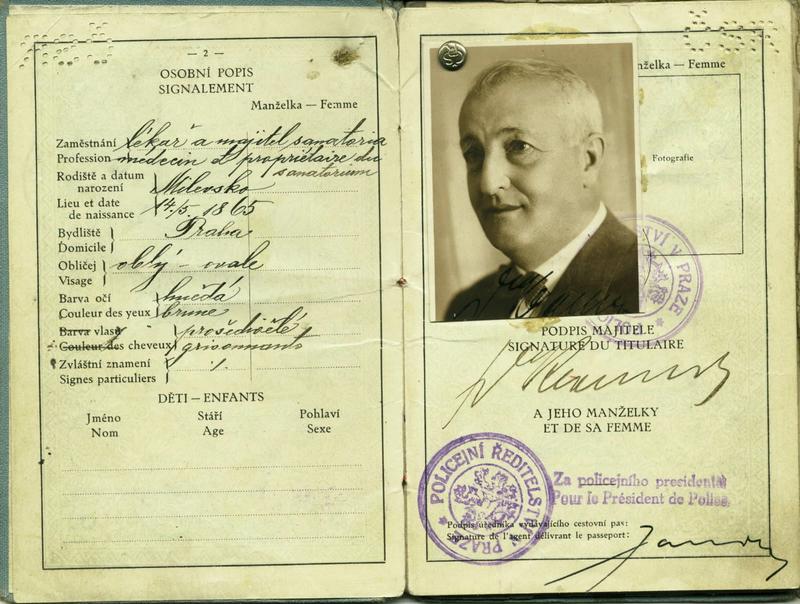 — 2 —
OSOBNÍ POPIS
SIGNALEMENT
Manželka — Femme
Zaměstnání lékař a majitel sanatoria
Profession medecin et propriétaire du
sanatorium
Rodiště a datum
narození
Milevsko
Lieu et date
de naissance
14/5. 1865
Bydliště
Domicile
Praha
Obličej
Visage
oblý - ovale
Barva očí hnědá
Couleur des yeux brune
Barva vlasů prošedivělé
Couleur des cheveux grisonnants
Zvláštní znamení
Signes particuliers
./.
DĚTI — ENFANTS
Jméno Stáří Pohlaví
Nom Age Sexe
nželka — Femme
Fotografie
PODPIS MAJITELE
SIGNATURE DU TITULAIRE
A JEHO MANŽELKY
ET DE SA FEMME
POLICEJNÍ ŘEDITELSTVÍ V PRAZE
Za policejního presidenta:
Pour le Président de Police:
Podpis úředníka vydávajícího cestovní pas:
Signature de l'agent délivrant le passeport: